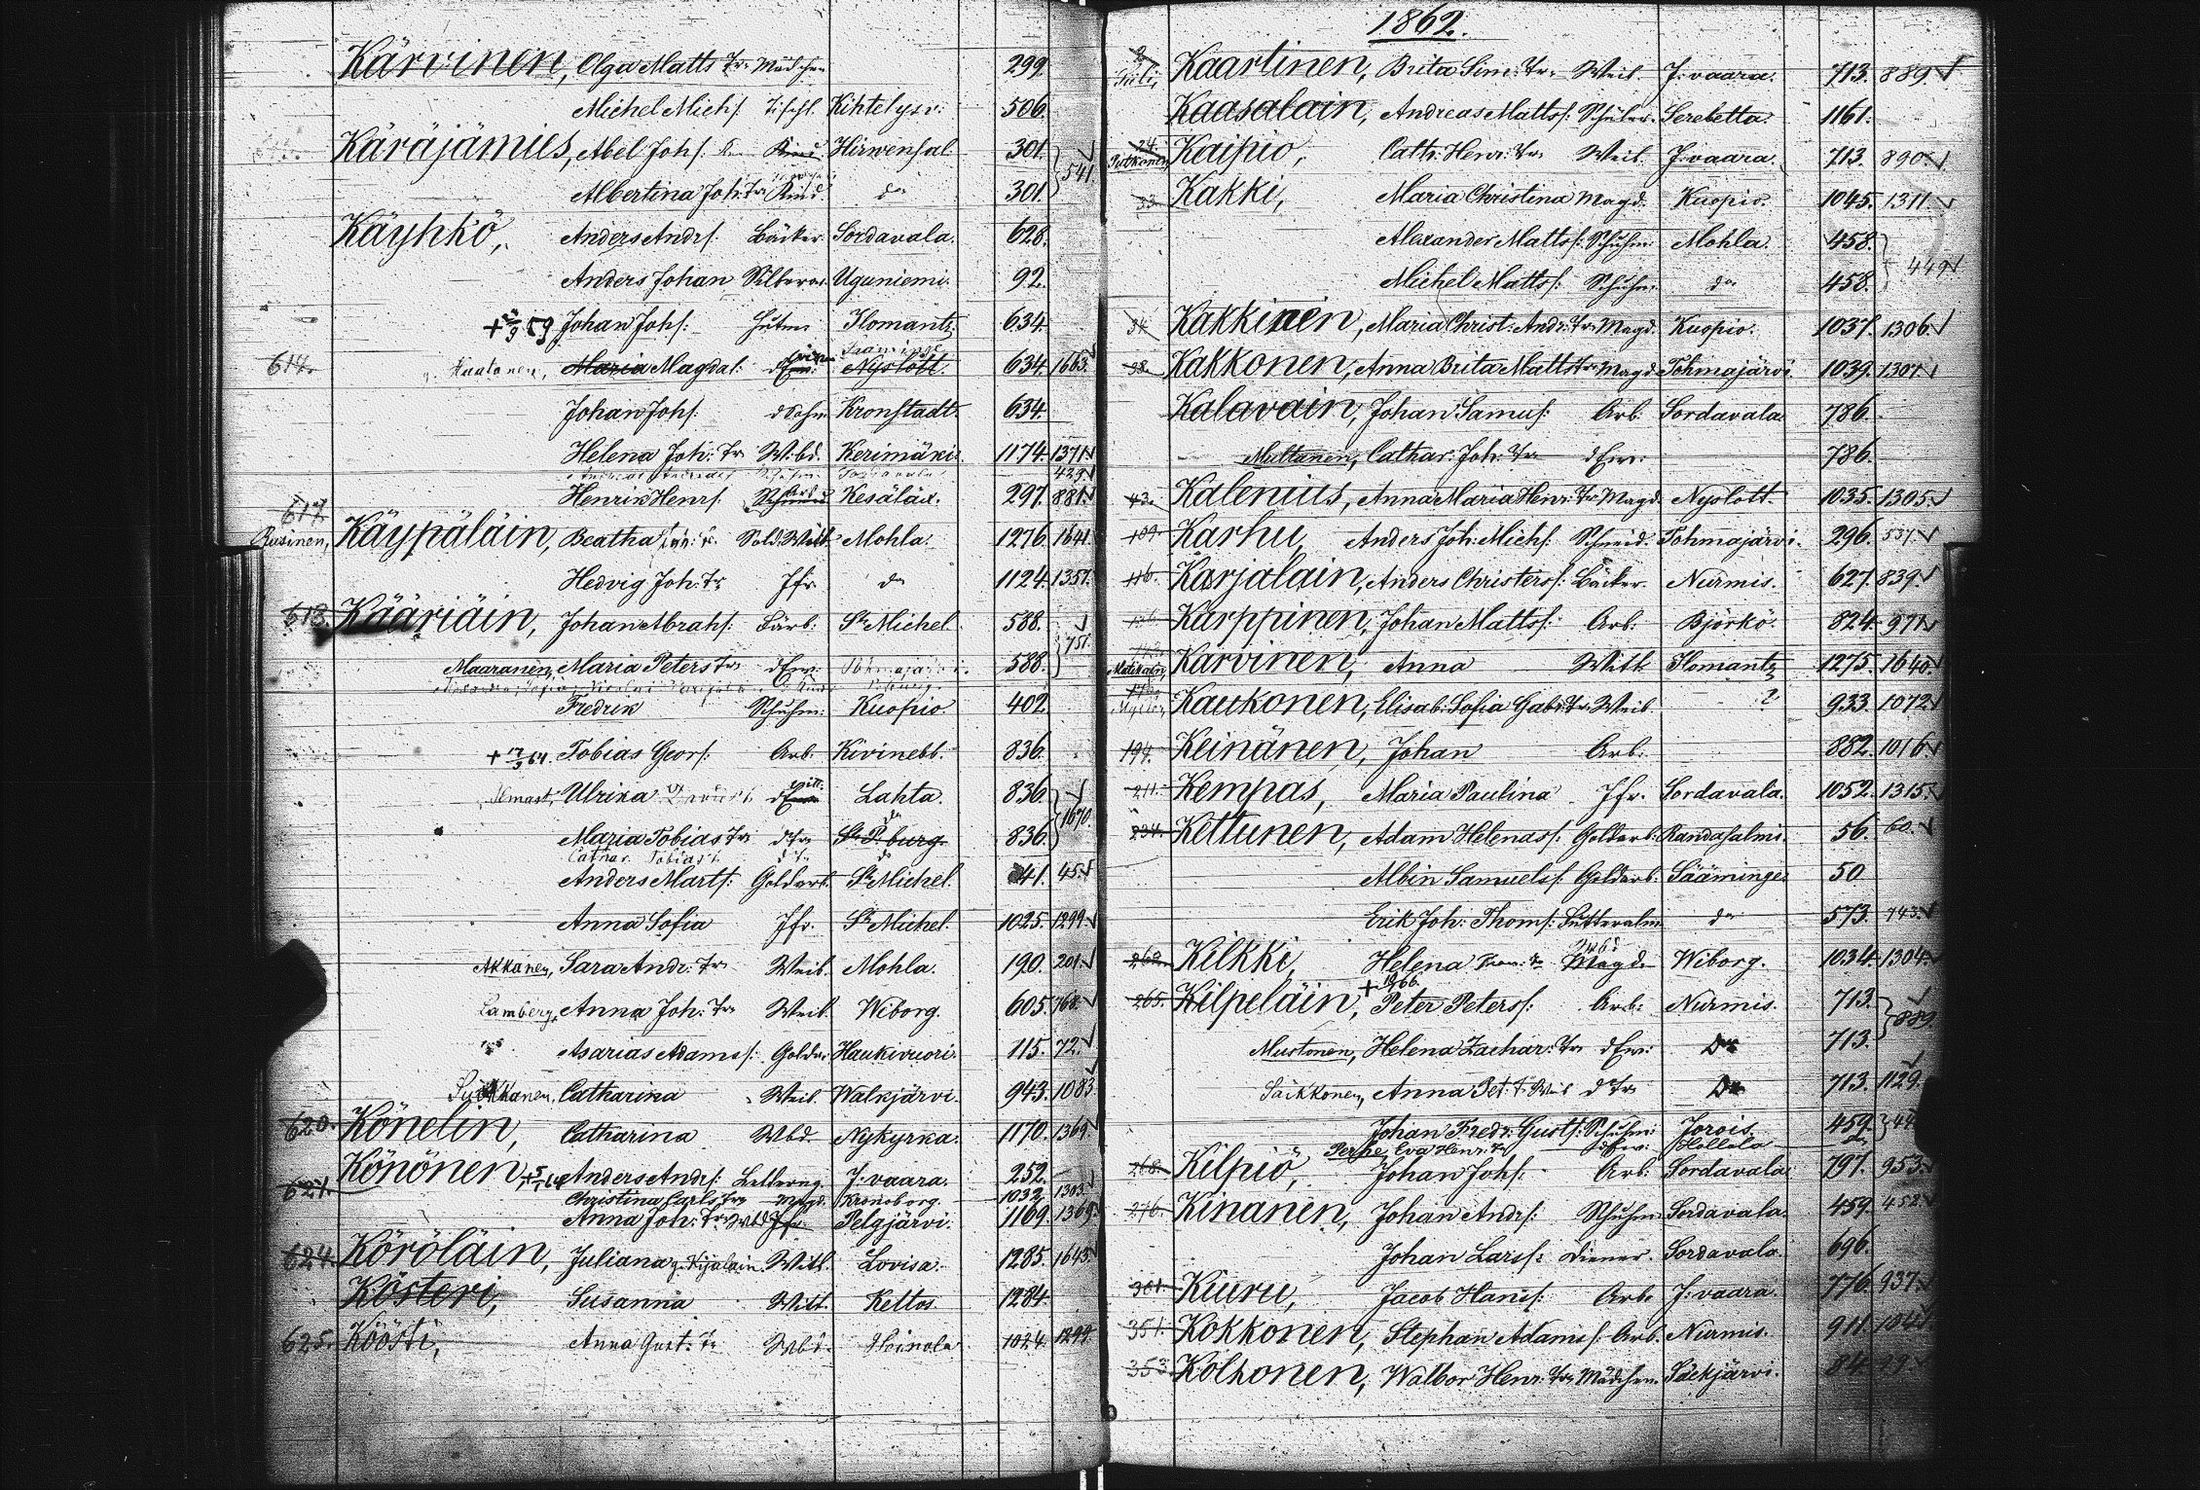 Kärvinen, Olga Matts Tr. Mädchen 299.
Michel Michs. Tischl. Kihtelysv: 506.
Käräjämies, Abel Johs. Kind. Hirwensal. 301. 541.
Albertina Joh: Tr. Kind. do 301.
Käyhkö, Anders Andrs. Bäcker. Sordavala. 628.
Anders Johan Silberar. Uguniemi. 92.
+ 59 Johan Johs. Ilomantz. 634.
617. Haatanen, Maria Magdal: dEw. Nyslott. 634. 1663.
Johan Johs. dSohn Kronstadt. 634.
Helena Joh: Tr. Wbd. Kerimäki. 1174. 1371.
423.
Henrik Henrs. Kesälax. 297. 881.
617.
Rusinen, Käypäläin, Beatha Sold. Witt. Mohla. 1276. 1641.
Hedvig Joh: Tr. Jfr. do 1124. 1357.
618. Kääriäin, Johan Abrahs: Färb: St Michel. 588. 751.
Maaranen, Maria Peters Tr. dEw. 588.
Fredrik Schuhm: Kuopio. 402.
+ 64. Tobias Geors: Arb: Kivineb. 836.
Ulrika Lahta. 836. 1670.
Maria Tobias Tr. dTr. St. P. burg. 836.
Cathar. Tobias
Anders Marts: Goldarb. St Michel. 41. 45.
Anna Sofia Jfr. St Michel. 1025. 1299.
Akkanen, Sara Andr: Tr. Weib. Mohla. 190. 201.
Lamberg, Anna Joh: Tr. Weib. Wiborg. 605. 768.
Asarias Adams: Goldar. Haukivuori. 115. 72.
Catharina Weib. Walkjärvi. 943. 1083.
620. Könelin, Catharina Wbd. Nykyrka. 1170. 1369.
621. Könönen Anders Andrs: J:vaara. 252.
Christina Carls Tr. Magd. Kronoborg. 1032. 1303.
Anna Joh: Tr. Wbd. Jfr. Pelgjärvi. 1169. 1369.
624. Köröläin, Juliana g. Kijalain. Witt. Lovisa. 1285. 1643.
Kösteri, Susanna Witt. Keltos. 1284.
625. Köösti, Anna Gust: Tr. Wbd. Heinola. 1024. 1299.
1862.
Kaartinen, Brita Sim: Tr. Weib. J:vaara. 713. 889.
Kaasalain, Andreas Matts: Schüler. Serebetta. 1161.
24. Putkonen, Kaipio, Cath: Henr: Tr. Weib. J:vaara. 713. 890.
33. Kakki, Maria Christina Magd. Kuopio. 1045. 1311.
Alexander Matts: Schuhm: Mohla. 458.
449.
Michel Matts: Schuhm. do 458.
34. Kakkinen, Maria Christ: Andr: Tr. Magd. Kuopio. 1037. 1306.
38. Kakkonen, Anna Brita Matts Tr. Magd. Tohmajärvi. 1039. 1307.
Kalavain, Johan Samus: Arb. Sordavala. 786.
Multanen, Cathar: Joh: Tr. dEw: 786.
43. Kalenius, Anna Maria Henr: Tr. Magd. Nyslott. 1035. 1305.
109. Karhu, Anders Joh: Michs. Schmid. Tohmajärvi. 296. 537.
116. Karjalain, Anders Christers: Bäcker. Nurmis. 627. 839.
Karppinen, Johan Matts: Arb: Björkö. 824. 971.
Karvinen, Anna Witt. Ilomantz. 1275. 1640.
Kaukonen, Elisab: Sofia Gab: Tr. Weib. ? 933. 1072.
194. Keinänen, Johan Arb. 882. 1016.
211. Kempas, Maria Paulina Jfr. Sordavala. 1052. 1315.
234. Kettunen, Adam Helenas: Goldarb: Randasalmi. 56. 60.
Albin Samuels: Goldarb: Sääminge. 50
Erik Joh: Thoms: do 573. 743.
262. Kilkki, Helena Magd. Wiborg. 1034. 1304.
265. Kilpeläin, Peter Peters: Arb: Nurmis. 713. 889.
Mustonen, Helena Zachar: Tr. dEw: Do 713.
Säikkonen, Anna Pet: T. Weib dTr Do 713. 1129.
Johan Fredr: Gusts: Schuhm: Jorois. 459. 44
Perhe, Eva Henr: Tr. dEw: Hollola
268. Kilpiö, Johan Johs: Arb. Sordavala. 797. 953.
276. Kinanen, Johan Andrs: Schuhm Sordavala. 459. 458.
Johan Lars: Diener. Sordavala. 696.
301. Kiuru, Jacob Hans: Arb. J:vaara. 776. 937.
351. Kokkonen, Stephan Adams: Arb. Nurmis. 911.
353. Kolhonen, Walbor Henr: Tr. Mädchen. Säckjärvi. 84.